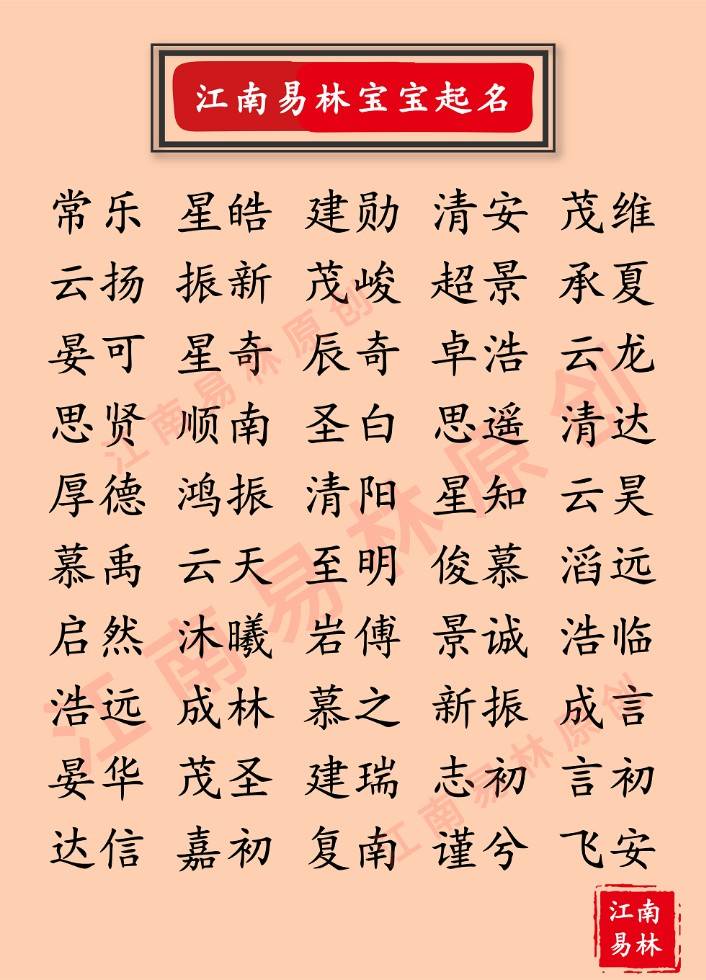 江南易林宝宝起名
常乐 星皓 建勋 清安 茂维
云扬 振新 茂峻 超景 承夏
晏可 星奇 辰奇 卓浩 云龙
思贤 顺南 圣白 思遥 清达
厚德 鸿振 清阳 星知 云昊
慕禹 云天 至明 俊慕 滔远
启然 沐曦 岩傅 景诚 浩临
浩远 成林 慕之 新振 成言
晏华 茂圣 建瑞 志初 言初
达信 嘉初 复南 谨兮 飞安
江南易林原创
江南易林原创
江南易林原创
江南
易林